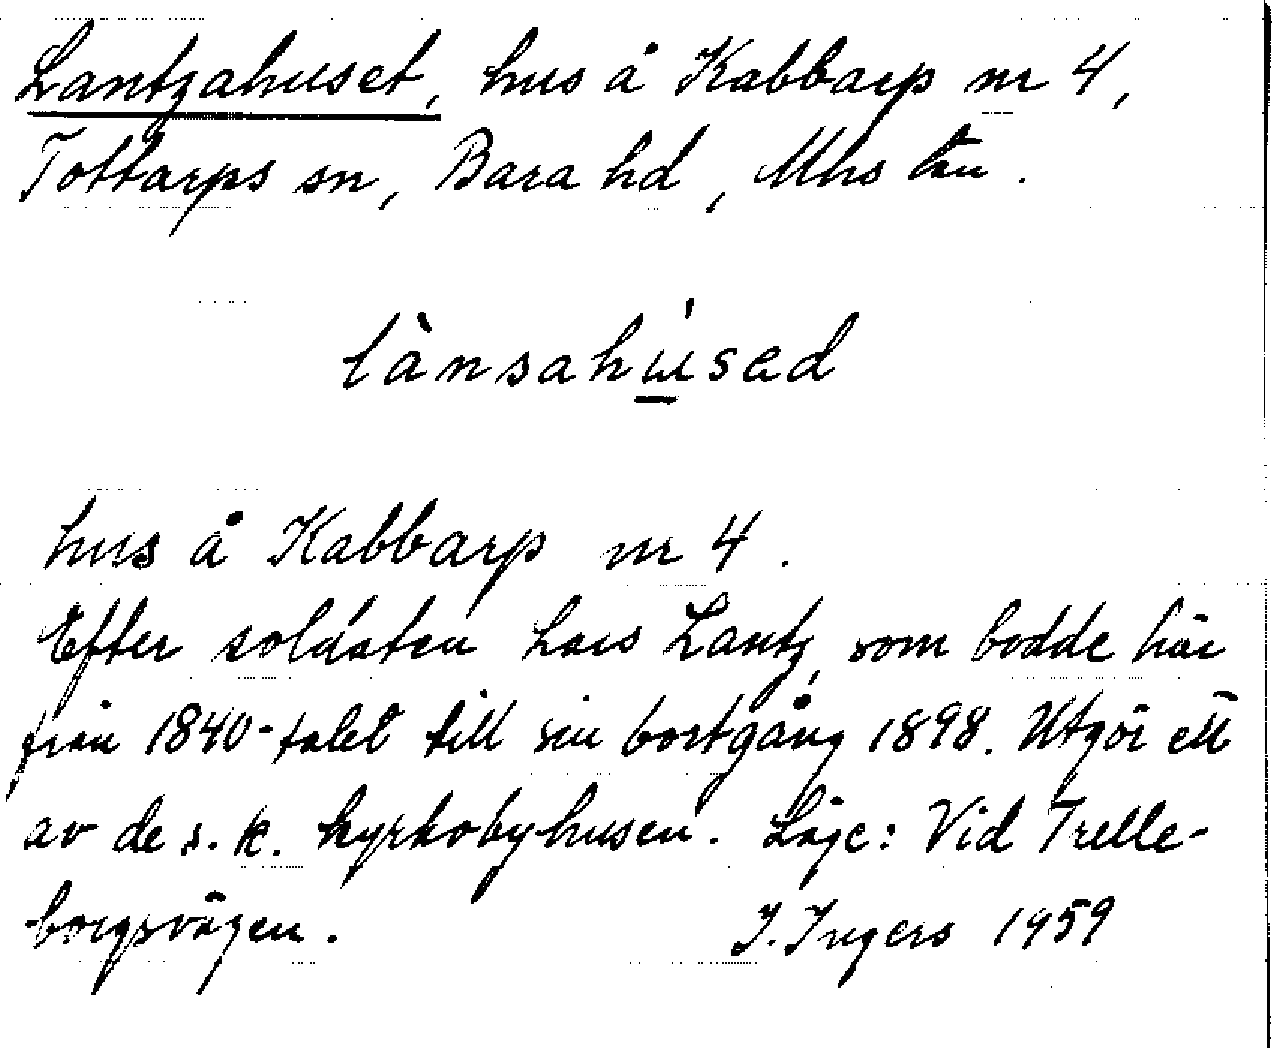 Lantzahuset, hus å Kabbarp nr 4,
Tottarps sn, Bara hd, Mhs län.
lànsahú̲sad
hus å Kabbarp nr 4.
Efter soldaten Lars Lantz, som bodde här
från 1840-talet till sin bortgång 1898. Utgör ett
av de s.k. kyrkobyhusen. Läge: Vid Trelle-
borgsvägen. I. Ingers 1959